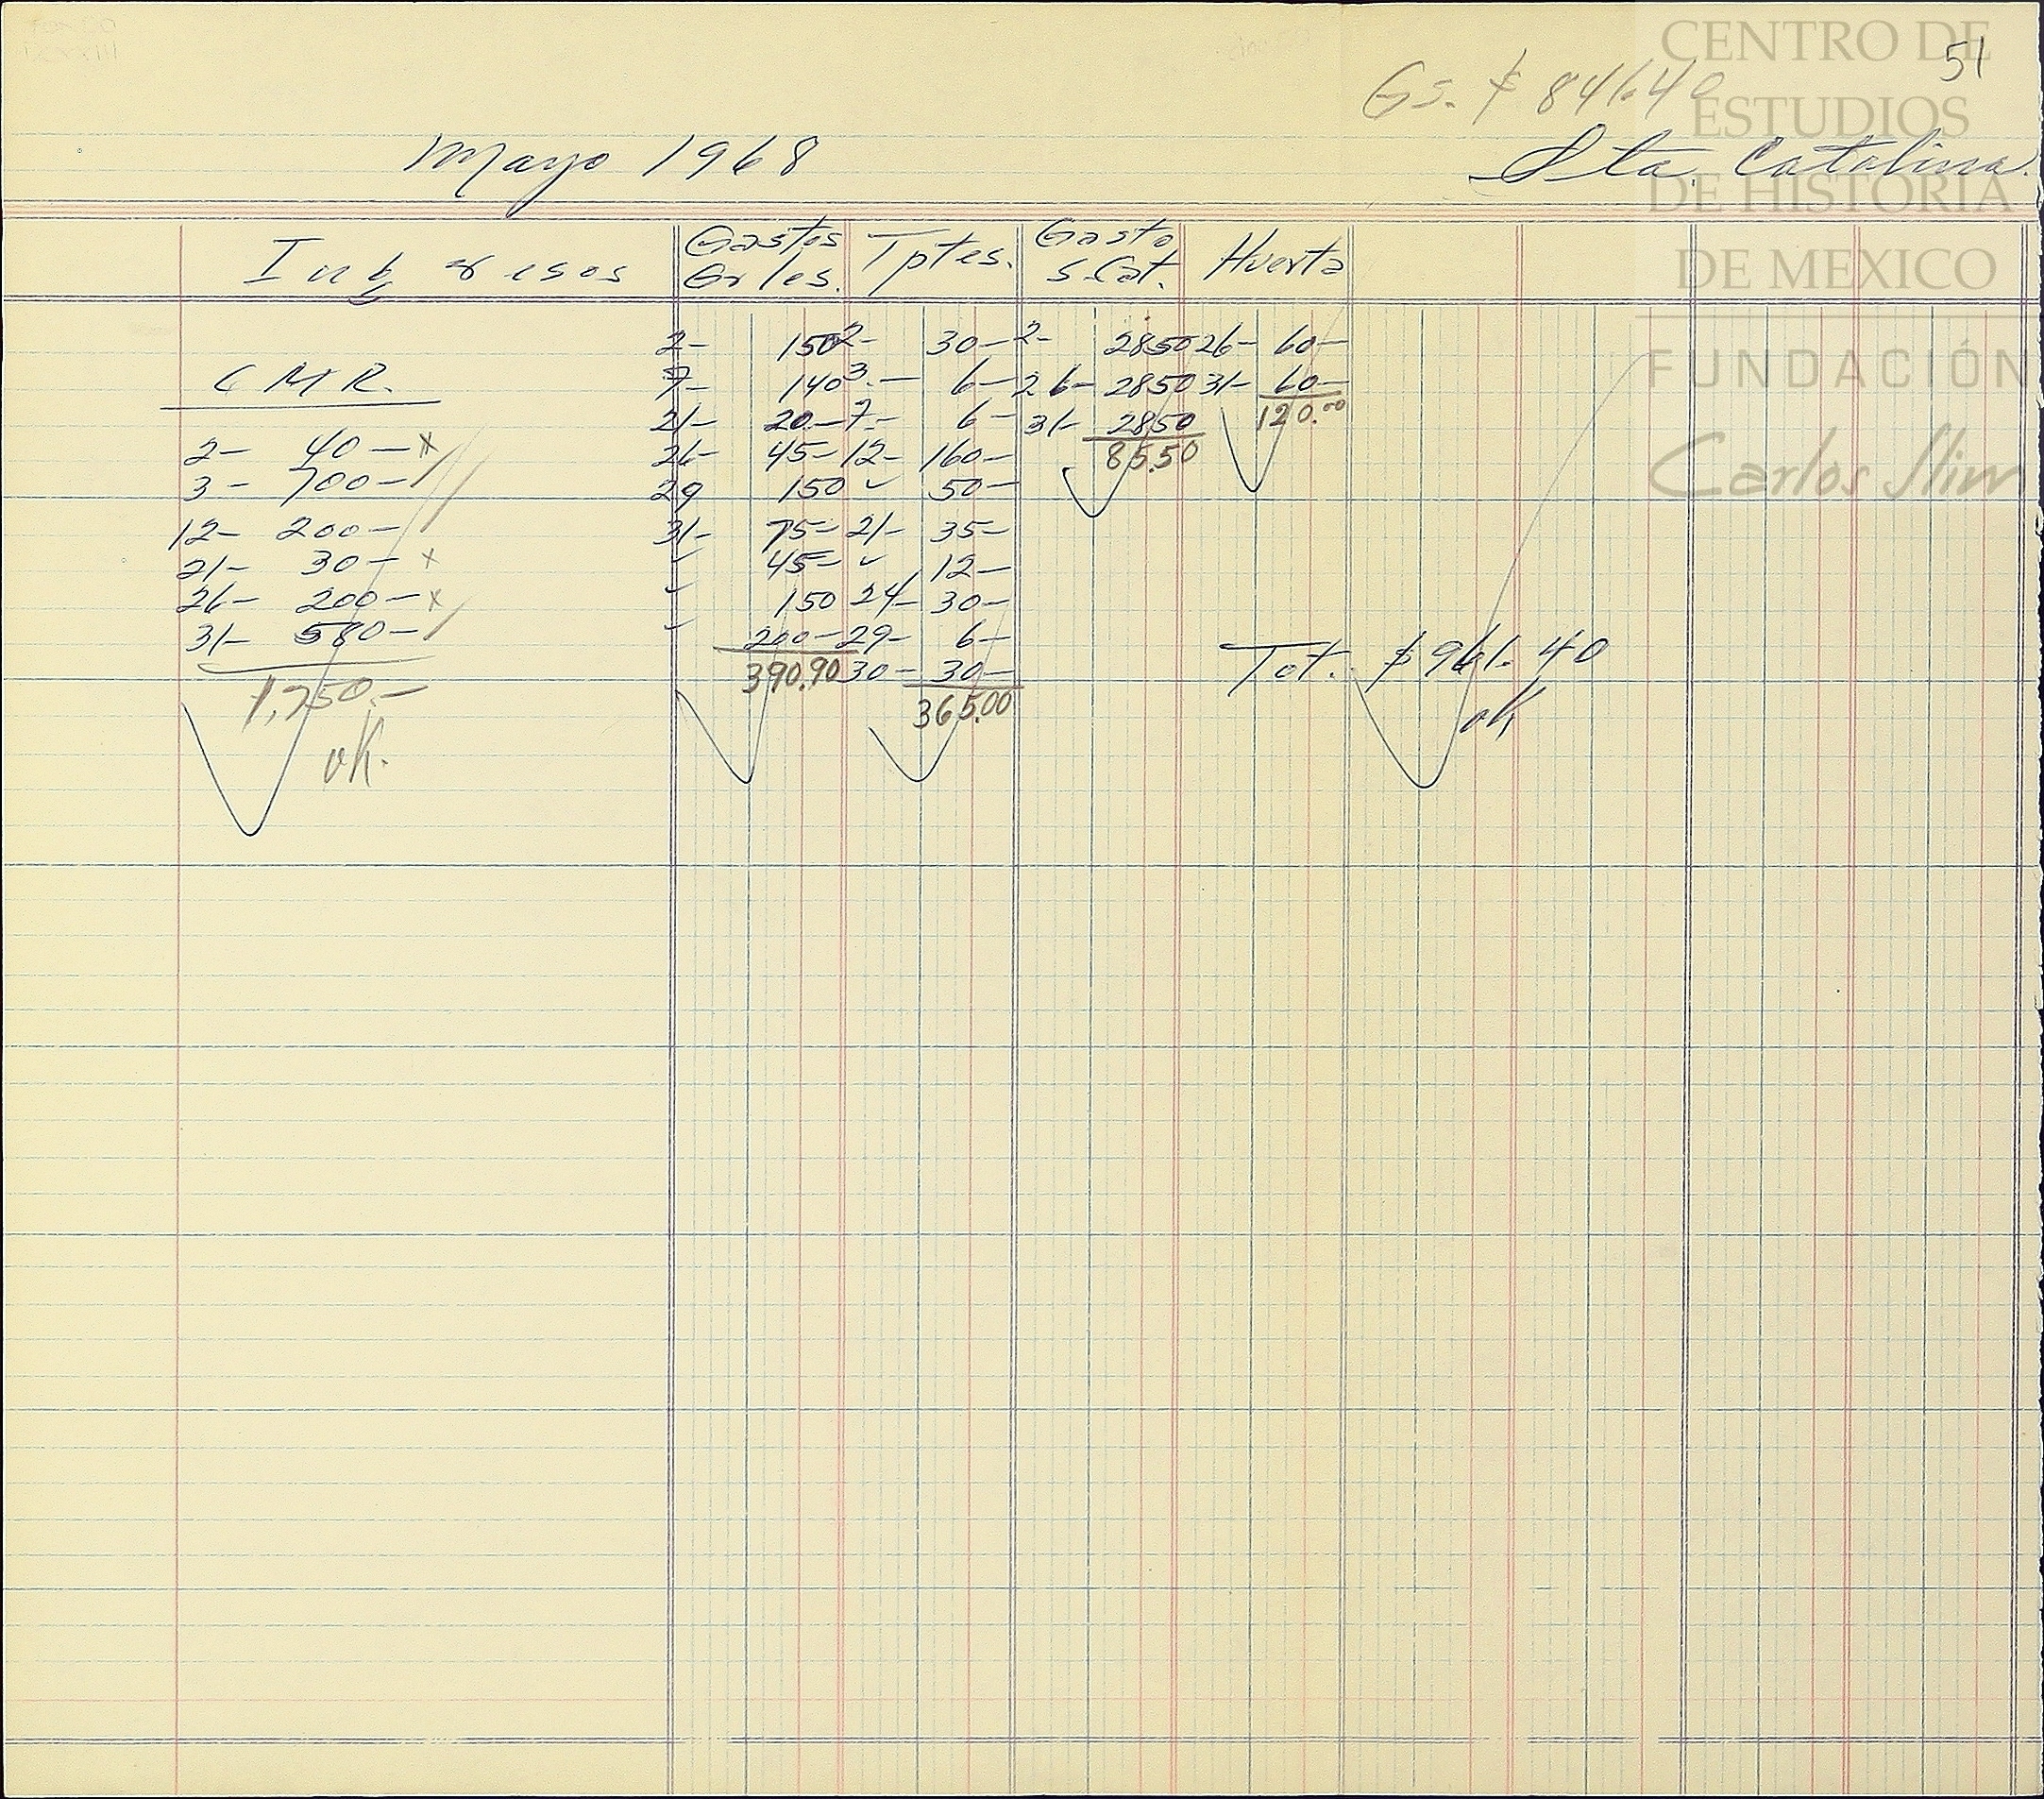 51
Gs. $ 841.40
Mayo 1968
Sta. Catalina.
CENTRO DE
ESTUDIOS
DE HISTORIA
DE MEXICO
FUNDACIÓN
Carlos Slim
Ingresos
Gastos Grles.
Tptes.
Gasto S. Cat.
Huerta
C M R.
2- 40-x
3- 700-/
12- 200-/
21- 30- x
26- 200-x
31- 580-/
1,750.-
ok.
2- 150
7- 140
21- 20-
26- 45-
29 150
31- 75-
" 45-
" 150
" 200-
390.90
2- 30-
3.- 6-
7- 6-
12- 160-
" 50-
21- 35-
" 12-
24- 30-
29- 6-
30- 30-
365.00
2- 2850
26- 2850
31- 2850
85.50
26- 60-
31- 60-
120.00
Tot. $961.40
ok